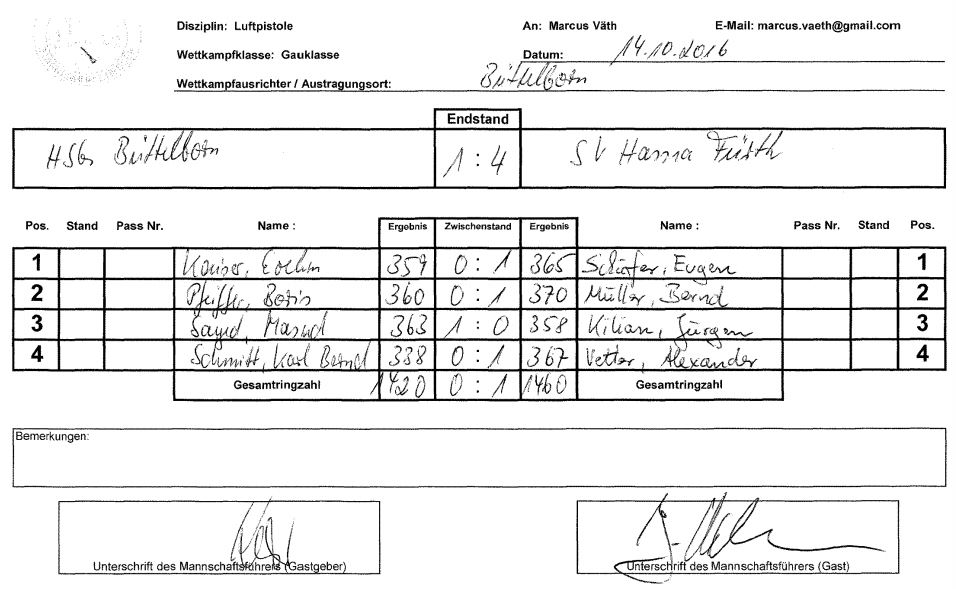 Disziplin: Luftpistole An: Marcus Väth E-Mail: marcus.vaeth@gmail.com
Wettkampfklasse: Gauklasse Datum: 14.10.2016
Wettkampfausrichter / Austragungsort: Büttelborn
Endstand
HSG Büttelborn 1 : 4 SV Hanna Fürth
Pos. Stand Pass Nr. Name : Ergebnis Zwischenstand Ergebnis Name : Pass Nr. Stand Pos.
1 359 0 : 1 365 Schäfer, Eugen 1
2 Pfeiffer, Boris 360 0 : 1 370 Müller, Bernd 2
3 363 1 : 0 358 Kilian, Jürgen 3
4 Schmitt, Karl Bernd 338 0 : 1 367 Vetter, Alexander 4
Gesamtringzahl 1420 0 : 1 1460 Gesamtringzahl
Bemerkungen:
Unterschrift des Mannschaftsführers (Gastgeber) Unterschrift des Mannschaftsführers (Gast)